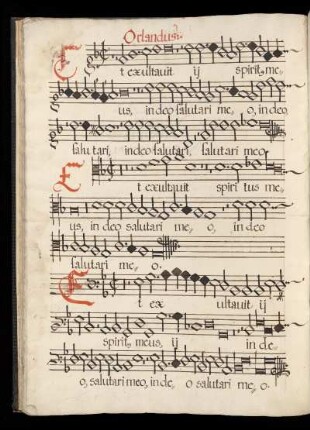 Orlandus
Et exultauit ij spirit, me,
us, in deo salutari me, o, in deo
salutari, indeo salutari, salutari meo,
Et exultauit spiritus me,
us, in deo salutari me, o, in deo
salutari me, o.
Et ex ultauit ij
spirit, meus, ij in de,
o, salutari meo, in de, o salutari me, o.